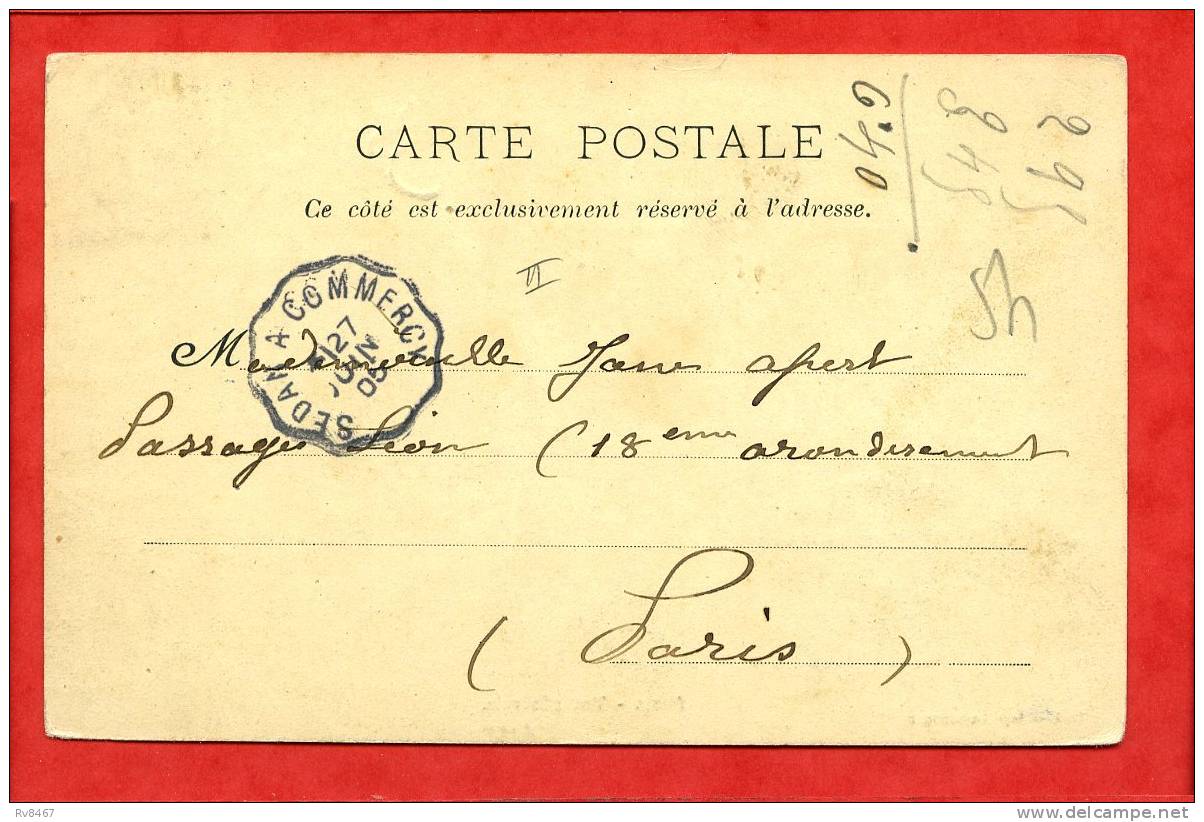 CARTE POSTALE
Ce côté est exclusivement réservé à l'adresse.
SEDAN A COMMERCY
27
JUIN
05
VI
Mademoiselle Jane apert
Passage Léon (18eme arondisement
(Paris)
295
345
6.40
54
Rv8467
www.delcampe.net